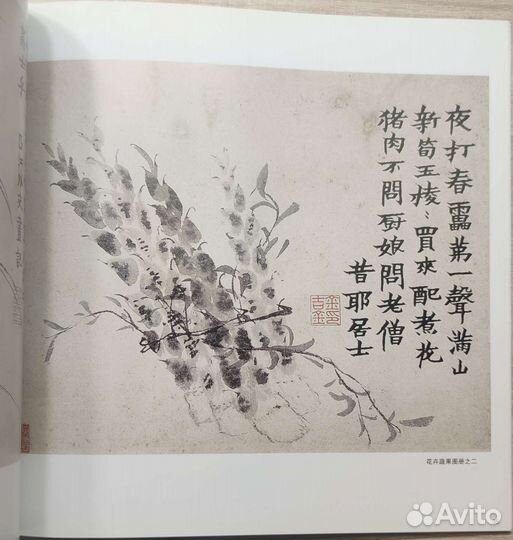 夜打春靁苐一聲滿山
新筍玉棱〻買來配煮花
猪肉不問厨娘問老僧
昔耶居士
花卉蔬果圖册之二
Avito